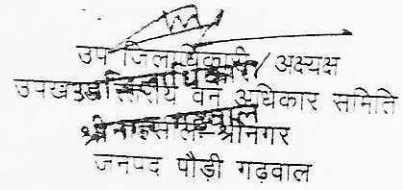 उप जिलाधिकारी/ अध्यक्ष
उपखण्ड स्तरीय वन अधिकार समिति
श्रीनगर
जनपद पौड़ी गढ़वाल